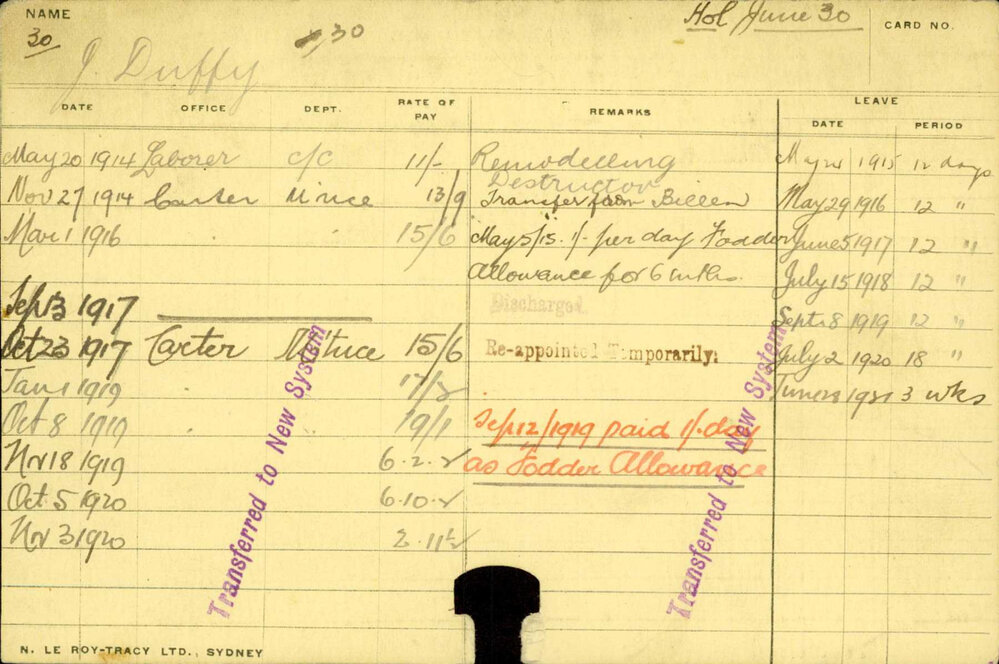 NAME
Hol June 30
CARD NO.
30
30
J. Duffy
DATE OFFICE DEPT. RATE OF PAY REMARKS LEAVE
DATE PERIOD
May 20 1914 Laborer C/C 11/- Remodelling 1915 12 days
Destructor
Nov 27 1914 Carter 13/9 Transfer from May 29 1916 12 "
Mar 1 1916 15/6 May 5/15. 1/- per day Fodder June 5 1917 12 "
Allowance for 6 mths. July 15 1918 12 "
Sep 13 1917 Discharged
Sept 8 1919 12 "
Oct 23 1917 Carter 15/6 Re-appointed Temporarily. July 2 1920 18 "
Jan 1 1919 3 wks
Oct 8 1919 19/1 Sep 12/1919 paid 1/- day
Nov 18 1919 6.2.2 as Fodder Allowance
Oct 5 1920 6.10.2
Nov 3 1920
Transferred to New System
Transferred to New System
N. LE ROY-TRACY LTD., SYDNEY